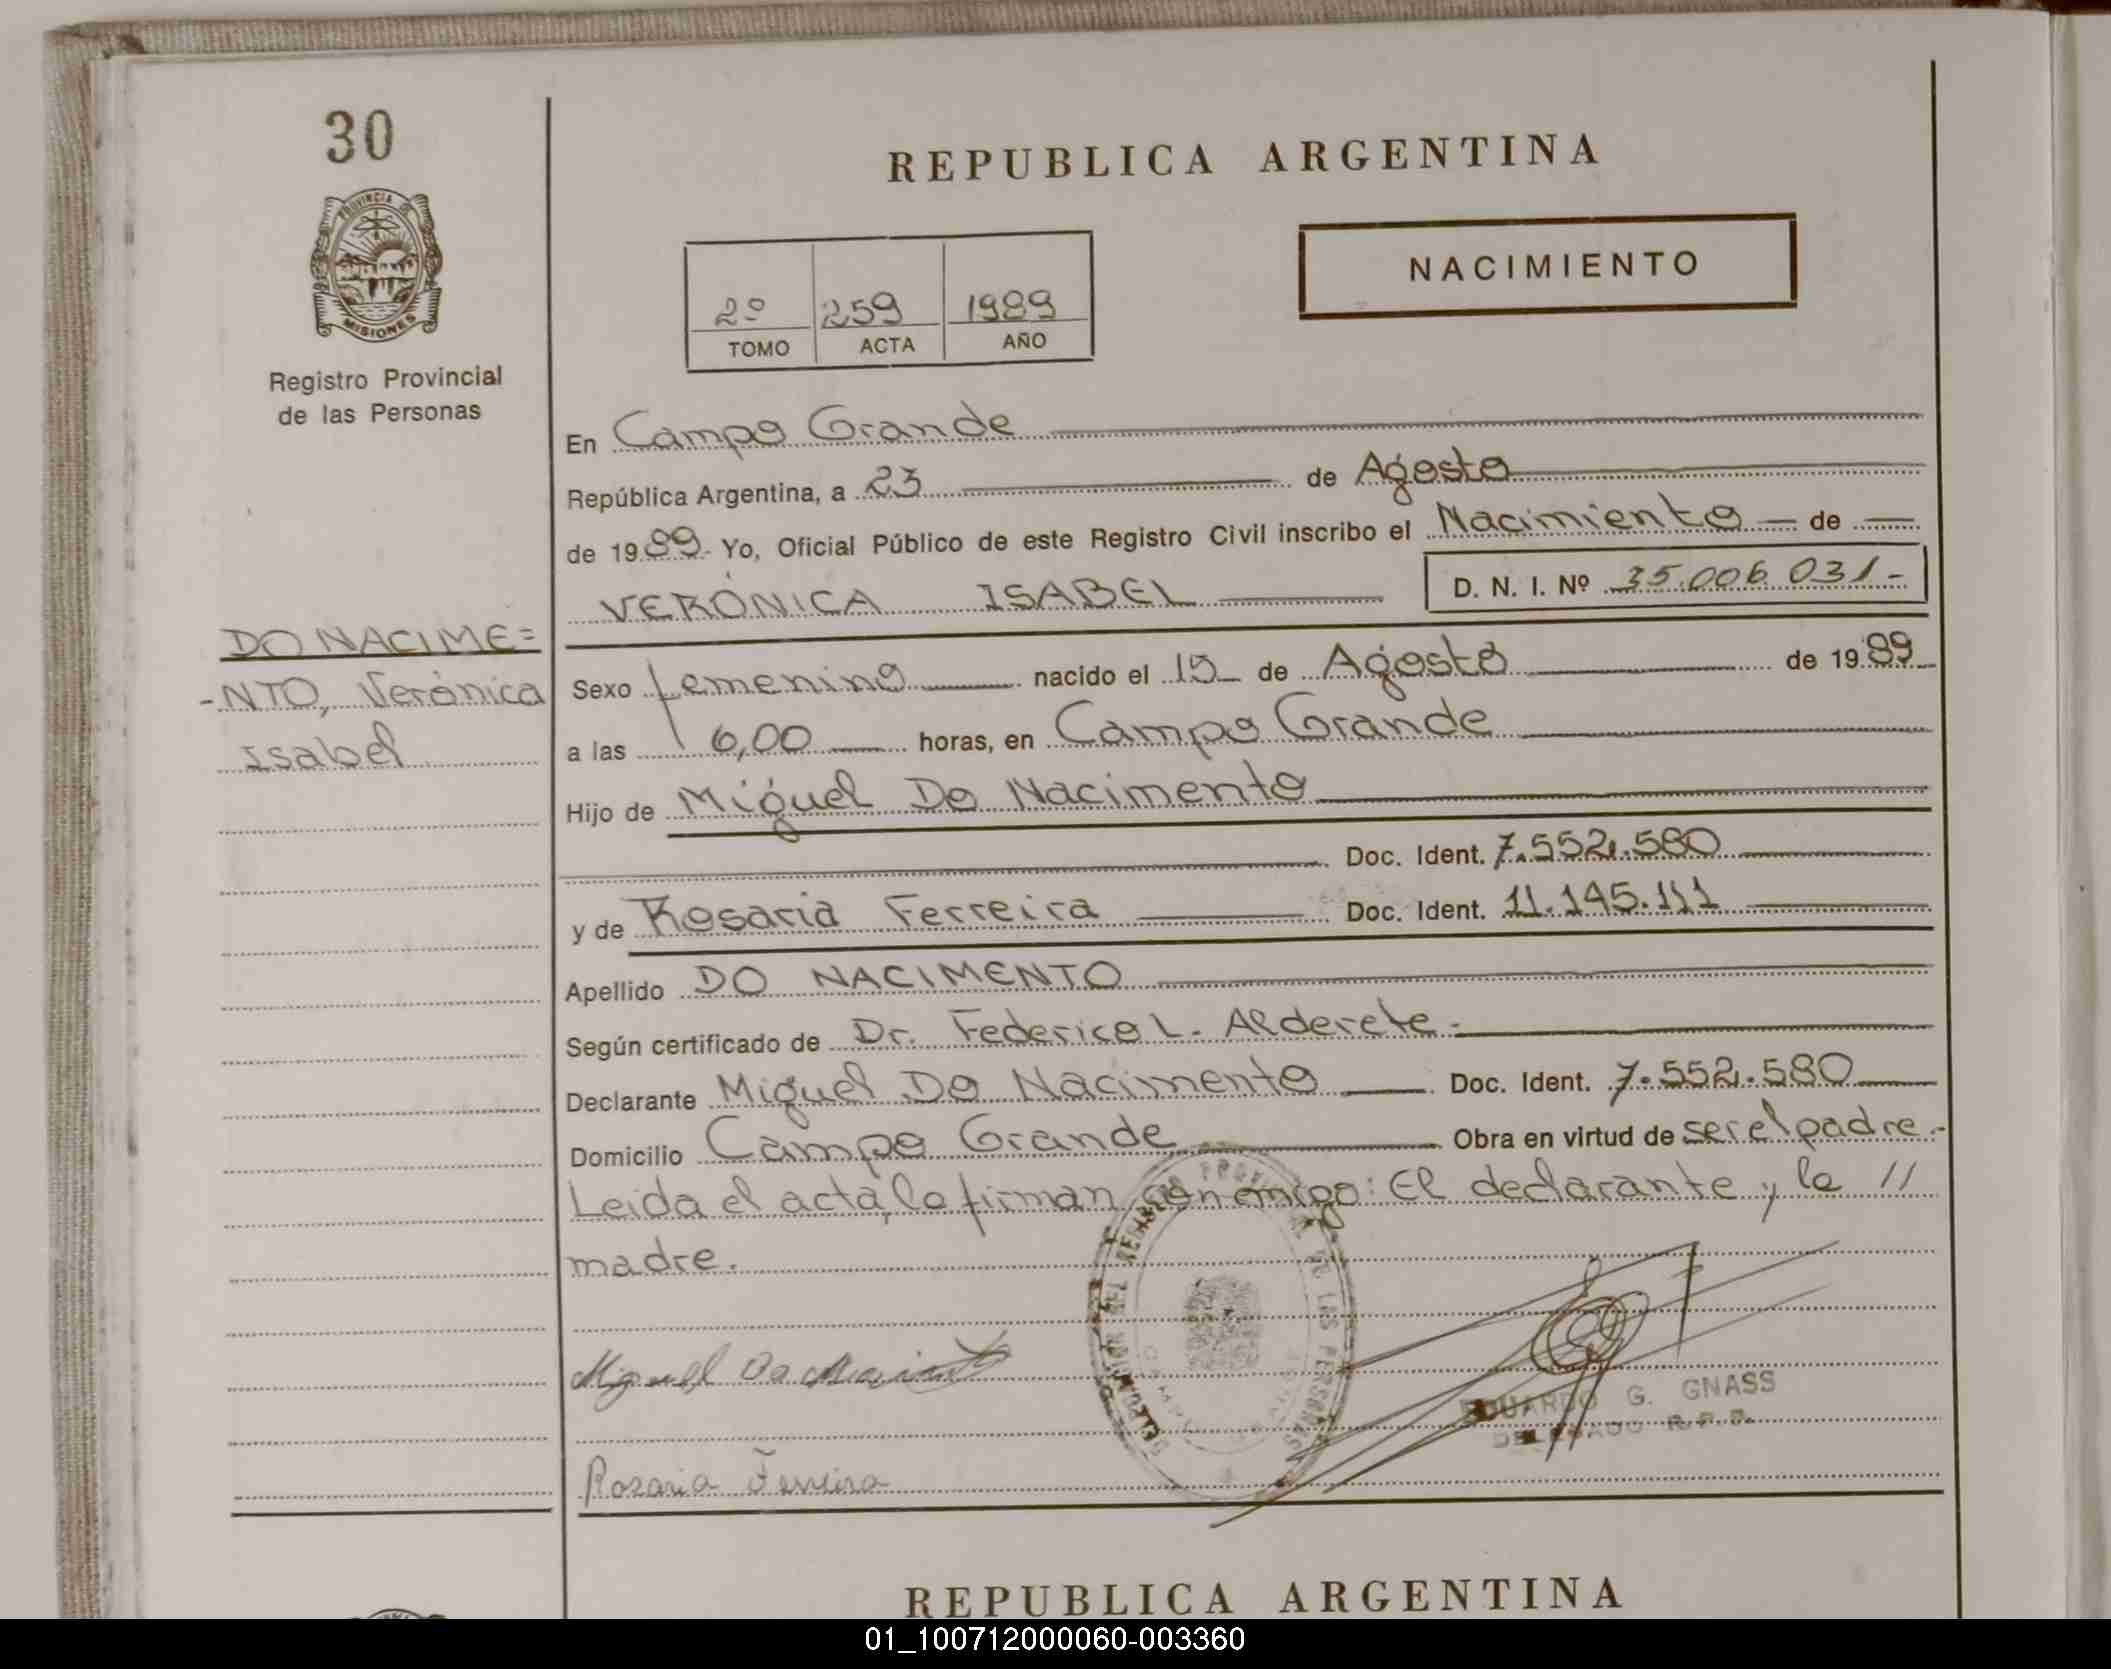 30
PROVINCIA DE
MISIONES
Registro Provincial
de las Personas
REPUBLICA ARGENTINA
NACIMIENTO
2º 259 1989
TOMO ACTA AÑO
En Campo Grande
República Argentina, a 23 de Agosto
de 1989 Yo, Oficial Público de este Registro Civil inscribo el Nacimiento de
VERÓNICA ISABEL D. N. I. Nº 35.006.031-
DO NACIME=
-NTO, Verónica
Isabel
Sexo femenino nacido el 15 de Agosto de 1989
a las 6,00 horas, en Campo Grande
Hijo de Miguel Do Nacimento
Doc. Ident. 7.552.580
y de Rosaria Ferreira Doc. Ident. 11.145.111
Apellido DO NACIMENTO
Según certificado de Dr. Federico L. Alderete.-
Declarante Miguel Do Nacimento Doc. Ident. 7.552.580
Domicilio Campo Grande Obra en virtud de ser el padre.-
Leida el acta, la firman conmigo: El declarante y la //
madre.
Miguel Do Nacimento
EDUARDO G. GNASS
DELEGADO R.P.P.
Rosaria Ferreira
REPUBLICA ARGENTINA
01_100712000060-003360